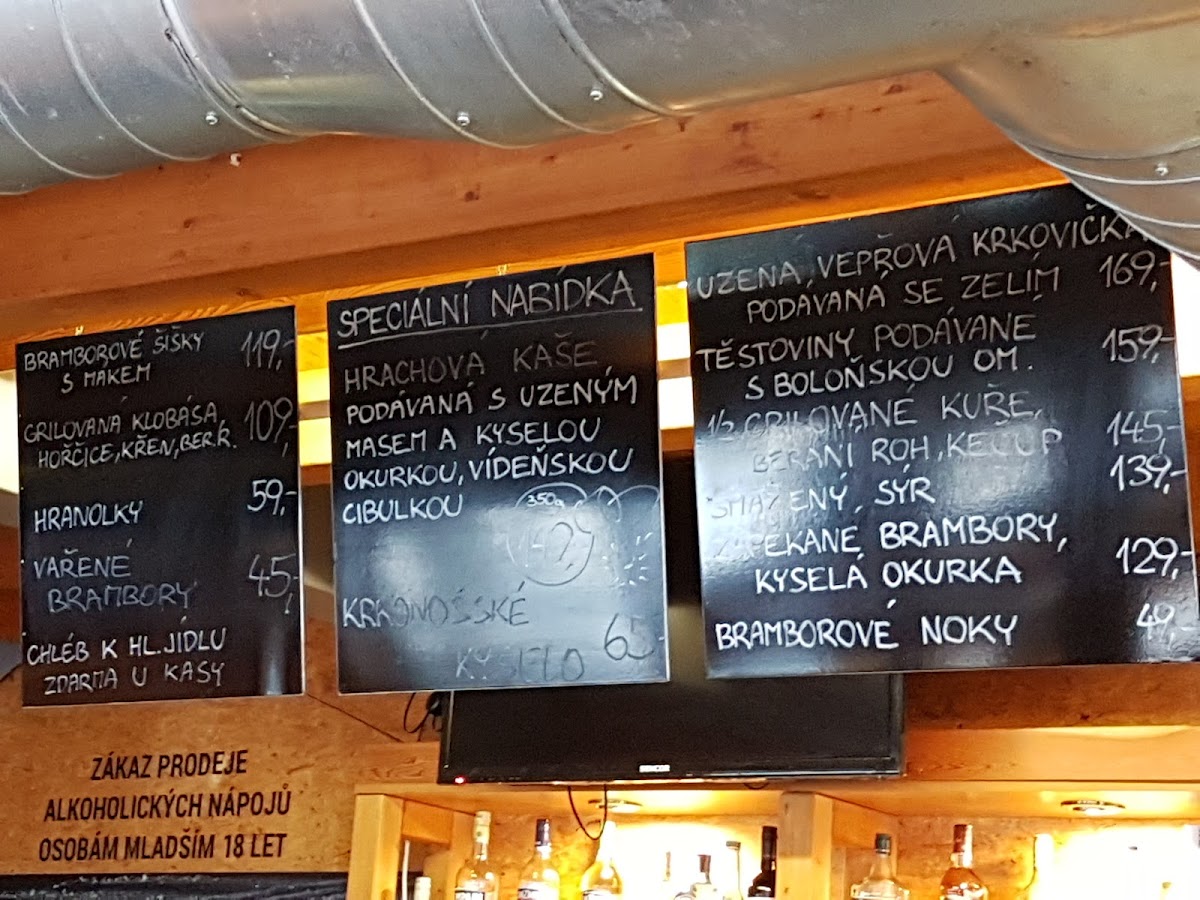 BRAMBOROVÉ ŠIŠKY 119,-
S MAKEM
GRILOVANÁ KLOBÁSA, 109,-
HOŘČICE, KŘEN, BER.R.
HRANOLKY 59,-
VAŘENÉ
BRAMBORY 45,-
CHLÉB K HL. JÍDLU
ZDARMA U KASY
SPECIÁLNÍ NABÍDKA
HRACHOVÁ KAŠE
PODÁVANÁ S UZENÝM
MASEM A KYSELOU
OKURKOU, VÍDEŇSKOU
CIBULKOU 350g
KRKONOŠSKÉ
KYSELO 65,-
UZENÁ, VEPŘOVÁ KRKOVIČKA
PODÁVANÁ SE ZELÍM 169,-
TĚSTOVINY PODÁVANÉ
S BOLOŇSKOU OM. 159,-
1/2 GRILOVANÉ KUŘE,
BERANÍ ROH, KEČUP 145,-
SMAŽENÝ, SÝR 139,-
ZAPEKANÉ BRAMBORY,
KYSELÁ OKURKA 129,-
BRAMBOROVÉ NOKY 49,-
ZÁKAZ PRODEJE
ALKOHOLICKÝCH NÁPOJŮ
OSOBÁM MLADŠÍM 18 LET